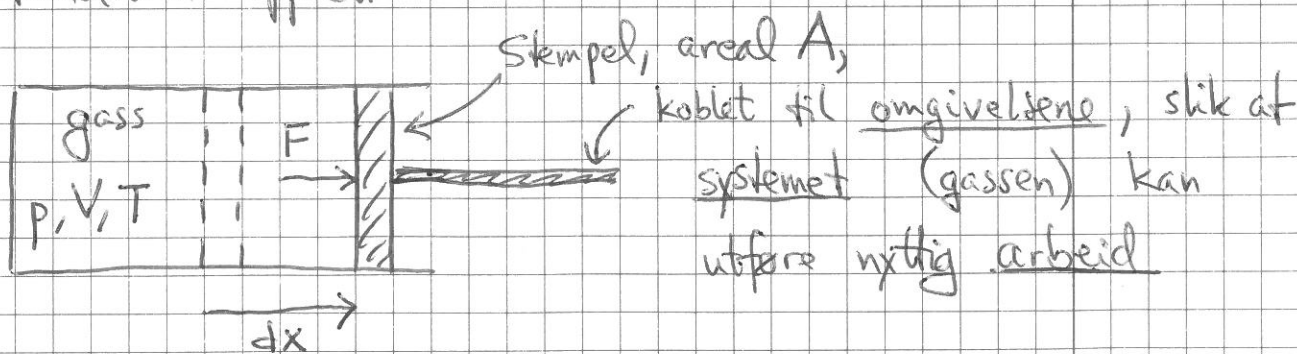 Stempel, areal A,
gass
F
koblet til omgivelsene, slik at
p, V, T
systemet (gassen) kan
utføre nyttig arbeid
dx